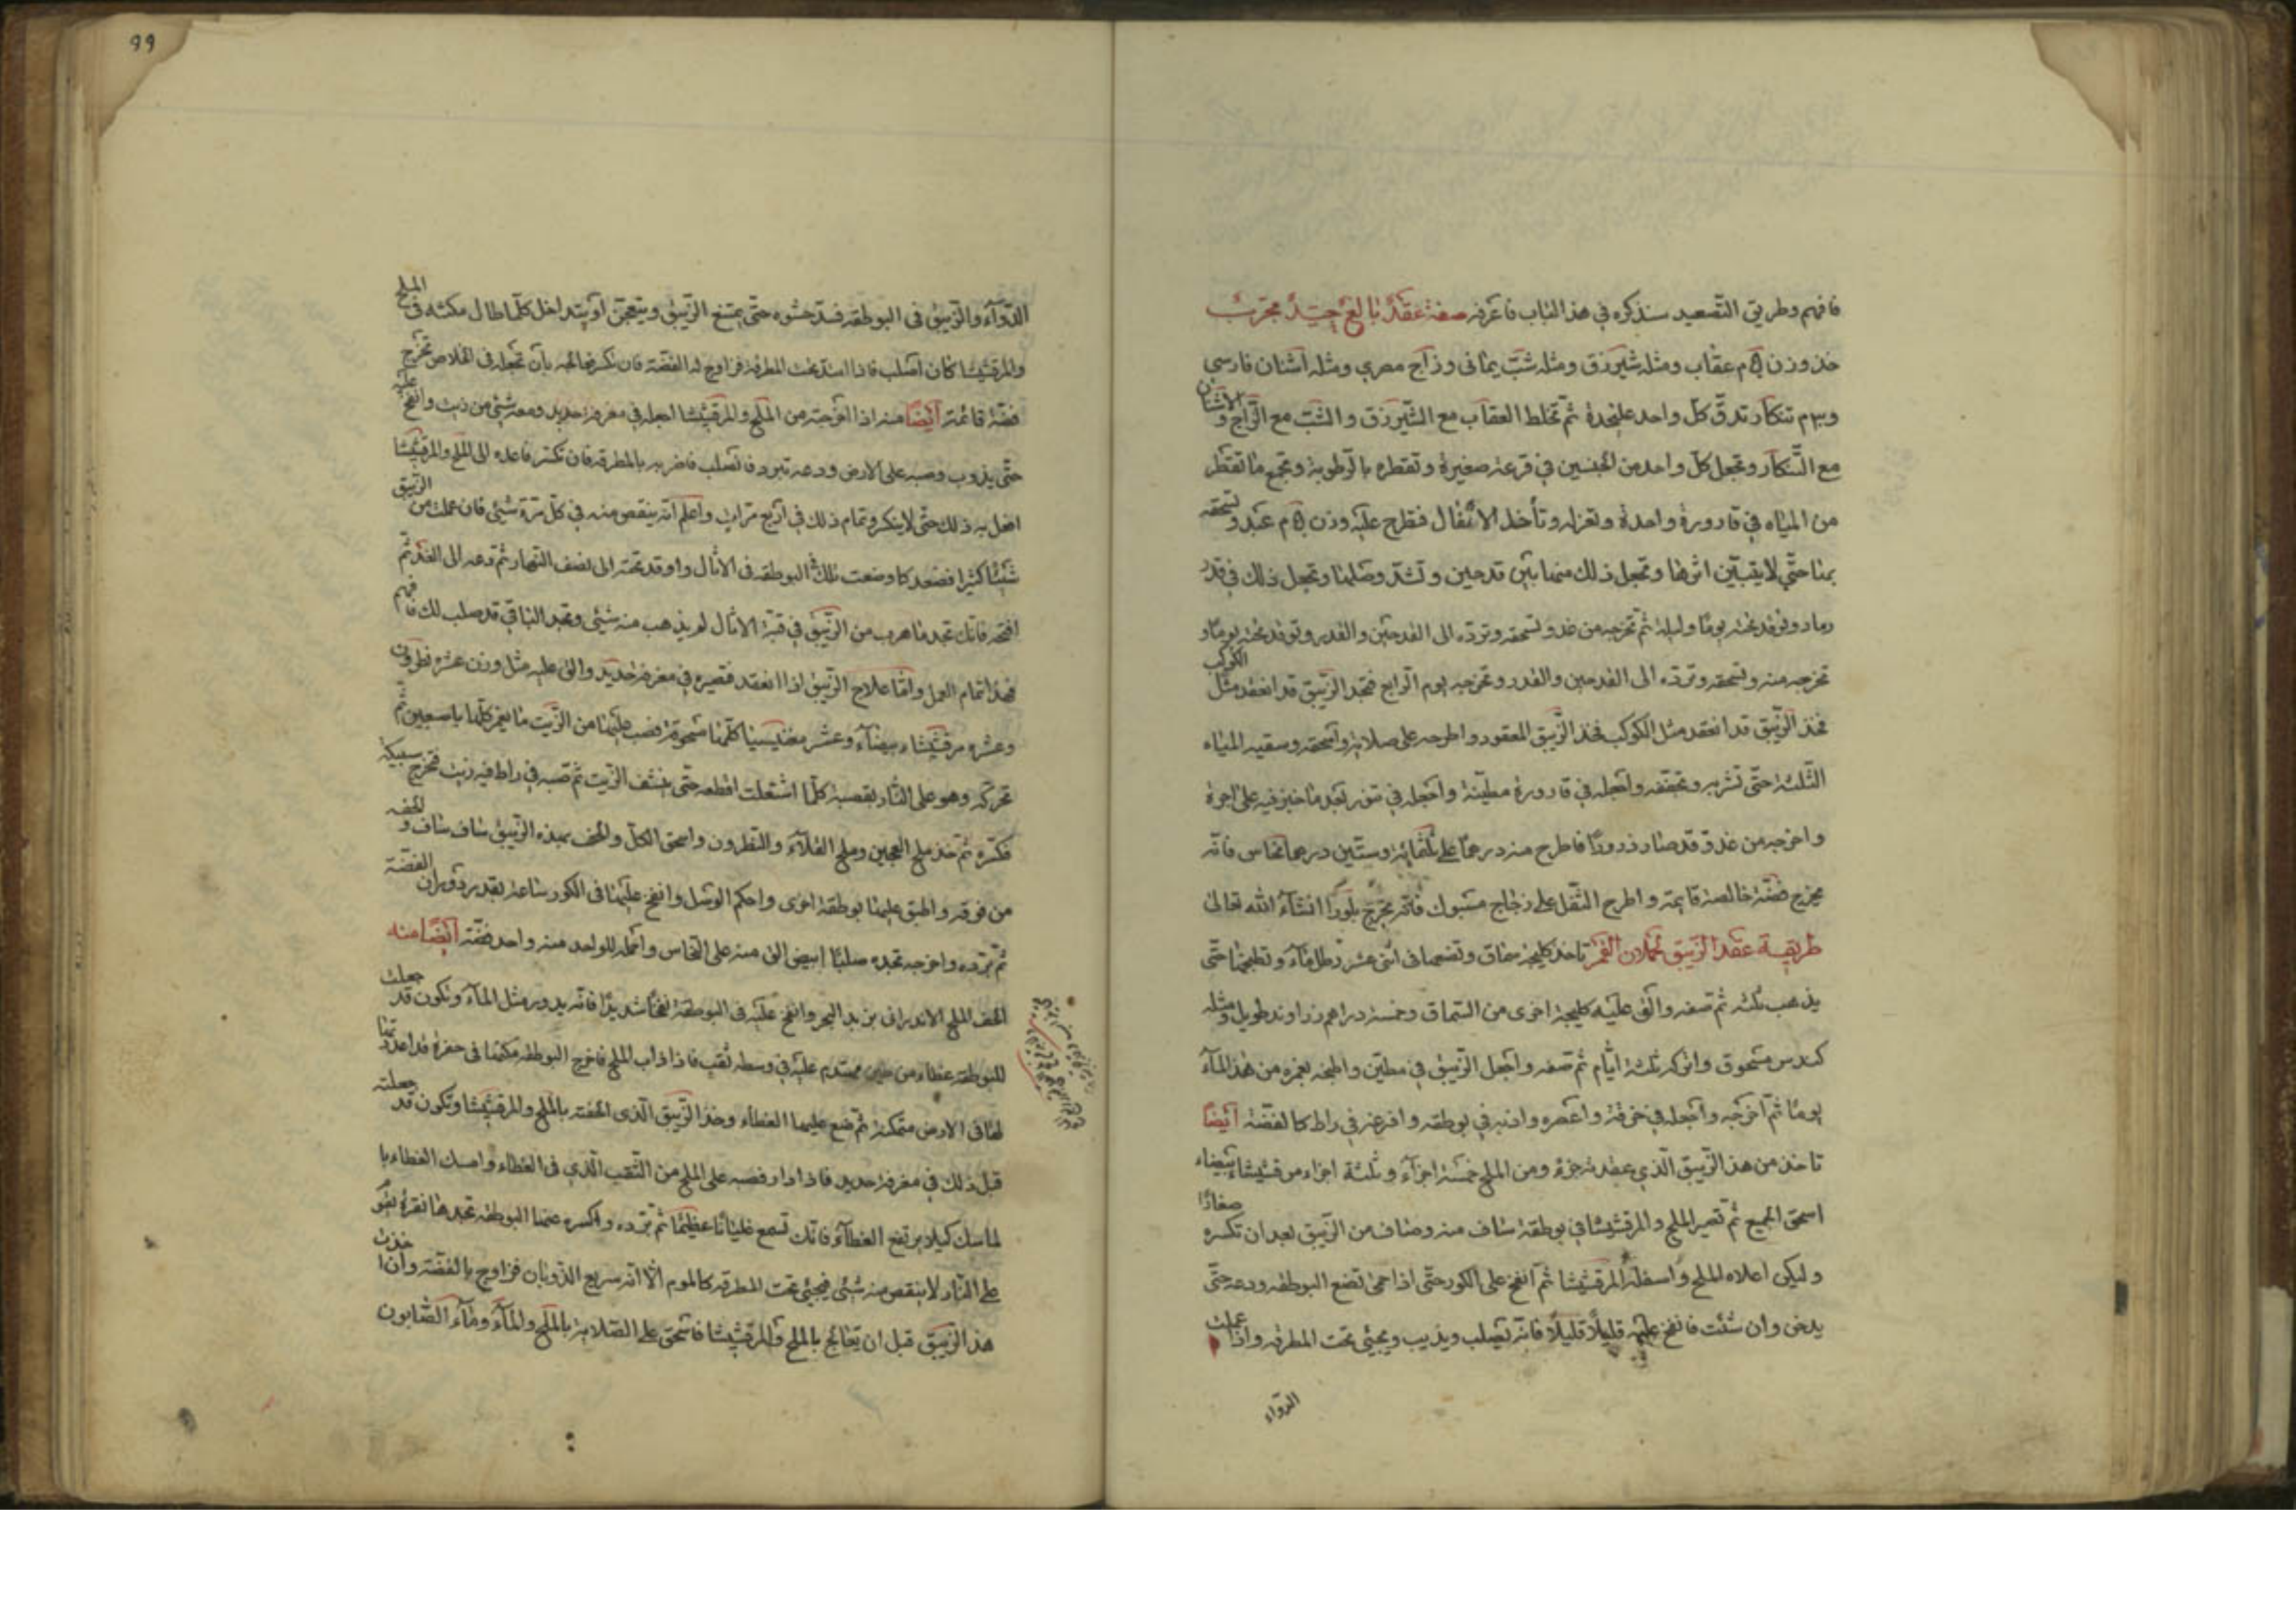 فافهم وطريق التصعيد سنذكره في هذا الباب فاعرفه صفة عقد بالغ جيد مجرب
خذ وزن م عقاب ومثله شيرزق ومثله شب يماني وزاج مصري ومثله اشنان فارسي
وم تنكار تدق كل واحد عليحدة ثم تخلط العقاب مع الشيرزق والشب مع الزاج والاشنان
مع التنكار وتجعل كل واحد من الجنسين في قرعة صغيرة وتقطره بالرطوبة وتجمع ما تقطر
من المياه في قارورة واحدة وتعزله وتأخذ الاثفال فتطرح عليه وزن م عبد وتسحقه
بمنا حتى لا يتبين اثرها وتجعل ذلك منها بين قدحين وتشد وصلهما وتجعل ذلك في قدر
رماد وتوقد تحته يوما وليلة ثم تخرجه من غد وتسحقه وترده الى القدحين والقدر وتوقد تحته يوما و
تخرجه منه وتسحقه وترده الى القدحين والقدر وتخرجه يوم الرابع فتجد الزيبق قد انعقد مثل الكوكب
فخذ الزيبق قد انعقد مثل الكوكب فخذ الزيبق المعقود واطرحه على صلاية واسحقه وسقيه المياه
الثلثة حتى تشربه وتجففه واجعله في قارورة مطينة واجعله في تنور بعد ما خبز فيه على اجرة
واخرجه من غد وقد صار ذرورا فاطرح منه درهما على ثلثمائة وستين درهما نحاس فانه
يخرج فضة خالصة قايمة واطرح الثقل على زجاج مسبوك فانه يخرج بلورا انشاء الله تعالى
طريقة عقد الزيبق لحملان القمر تاخذ كليجة سماق وتضعها في اثنى عشر رطل ماء وتطبخها حتى
يذهب ثلثه ثم تصفه والق عليه كليجة اخرى من السماق وخمسة دراهم زراوند طويل ومثله
كندس مسحوق واتركه ثلثة ايام ثم تصفه واجعل الزيبق في مطين واطبخه بغمره من هذا الماء
يوما ثم اخرجه واجعله في خرقة واعصره واذبه في بوطقة وافرغه في راط كالفضة ايضا
تاخذ من هذا الزيبق الذي عقدته جزء ومن الملح خمسة اجزآء وثلثة اجزاء مرقشيشا بيضاء
اسحق الجميع ثم تصير الملح والمرقشيشا في بوطقة ساف منه وساف من الزيبق بعد ان تكسره صغارا
وليكن اعلاه الملح واسفله المرقشيشا ثم انفخ على الكور حتى اذا حمى تضع البوطقه ودعه حتى
يدخن وان شئت فانفخ عليه قليلا قليلا فانه يصلب ويذيب ويجيئ تحت المطرقه واذا عملت
الدواء
99
الدوآء والزيبق في البوطقه فسد حشوه حتى يمتنع الزيبق ويتعجن او يتداخل كلما طال مكثه في الملح
والمرقشيشا كان اصلب فاذا امتد تحت المطرقة فزاوج له الفضة فان تكسر فعالجه بأن تجعله في الخلاص تخرج
فضة قائمة ايضا منه اذا اخرجته من الملح والمرقشيشا اجعله في مغرفة حديد ومعه شيئ من زيت وانفخ عليه
حتى يذوب وصبه على الارض ودعه تبرد فانه صلب فاضربه بالمطرقه فان تكسر فاعده الى الملح والمرقشيشا
افعل به ذلك حتى لا ينكسر وتمام ذلك في اربع مرات واعلم انه ينقص منه في كل مرة شيئ فان عملت من الزيبق
شيئا كثيرا فصعد كما وضعت تلك البوطقه في الاثال واوقد تحته الى نصف النهار ثم دعه الى الغد ثم
افتحه فانك تجد ما هرب من الزيبق في قبة الاثال لم يذهب منه شيئ وتجد الباقي قد صلب لك فافهم
فهذا تمام العمل واما علاج الزيبق اذا انعقد فتصيره في مغرفة حديد والق عليه مثل وزن عشره نطرون
وعشره مرقشيشاء بيضآء وعشر مغنيسيا كلها مسحوقة فصب عليهما من الزيت ما يغمر كلها باصبعين ثم
تحركه وهو على النار بقصبة كلما اشتعلت اقطعه حتى ينشف الزيت ثم تصبه في راط فيه زيت فتخرج سبيكة
فكسره ثم خذ ملح العجين وملح القلآء والنطرون واسحق الكل والحف بهذه الزيبق ساف ساف والحفه
من فوقه واطبق عليهما بوطقة اخرى واحكم الوشل وانفخ عليهما في الكور ساعة بقدر ذوبان الفضة
ثم تبرده واخرجه تجده صلبا ابيض الق منه على النحاس واحمله للواحد منه واحد فضة ايضا منه
الحف الملح الاندرانى بزبد البحر وانفخ عليه في البوطقة نفخا شديدا فانه يدور مثل المآء وتكون قد جعلت
للبوطقه غطاء من طين مهندم عليه في وسطه ثقب فاذا ذاب الملح فاخرج البوطقه مكنها في حفرة قد اعددتها
لها في الارض متمكنة ثم ضع عليها الغطاء وخذ الزيبق الذى الحفته بالملح والمرقشيشا وتكون قد جعلته
قبل ذلك في مغرفة حديد فاذا دار فصبه على الملح من الثقب الذي في الغطاء وامسك الغطاء با
لماسك كيلا يرتفع الغطآء فانك تسمع غليانا عظيما ثم تبرده واكسره عنها البوطقه تجدها نقرة تقو
على النار لا ينقص منه شيئ فيجيئ تحت المطرقه كالموم الا انه سريع الذوبان فزاوج بالفضة وان اخذت
هذا الزيبق قبل ان يعالج بالملح والمرقشيشا فاسحق على الصلاية بالملح والمآء ومآء الصابون